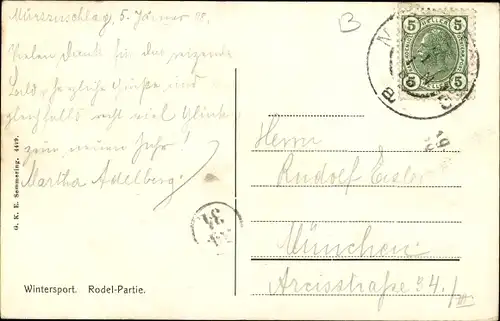 Mürzzuschlag, 5. Jänner 08.
Vielen Dank für das reizende
Bild, herzliche Grüße und
gleichfalls recht viel Glück
zum neuen Jahr!
Martha Adelberg.
B
5 HELLER 5
5 5
Herrn
Rudolf Eisler
München
Arcisstraße 34./III
G. K. E. Semmering. 4419.
Wintersport. Rodel-Partie.
34